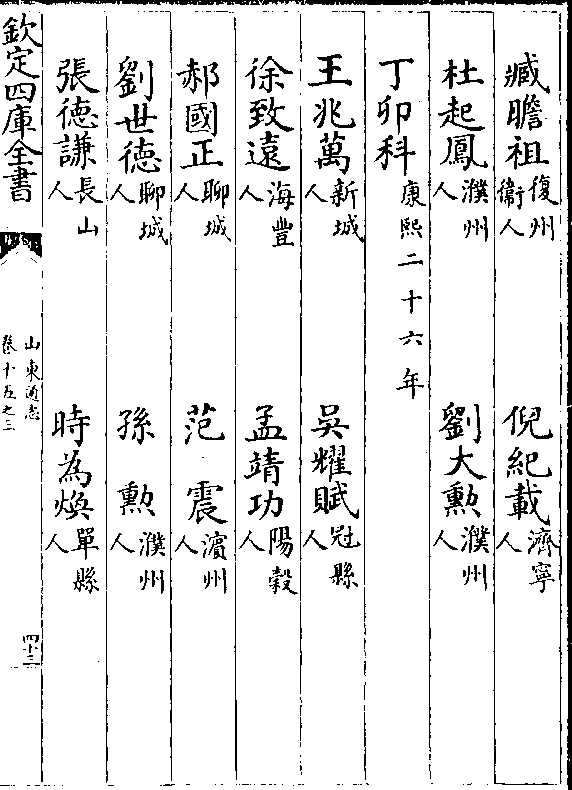 臧瞻祖復州衛人 倪紀載濟寧人
杜起鳳濮州人 劉大勲濮州人
丁卯科康熙二十六年
王兆萬新城人 吳耀賦冠縣人
徐致遠海豐人 孟靖功陽榖人
郝國正聊城人 范震濵州人
劉世德聊城人 孫勲濮州人
張德謙長山人 時為煥單縣人
欽定四庫全書
山東通志
卷十五之三
四十三